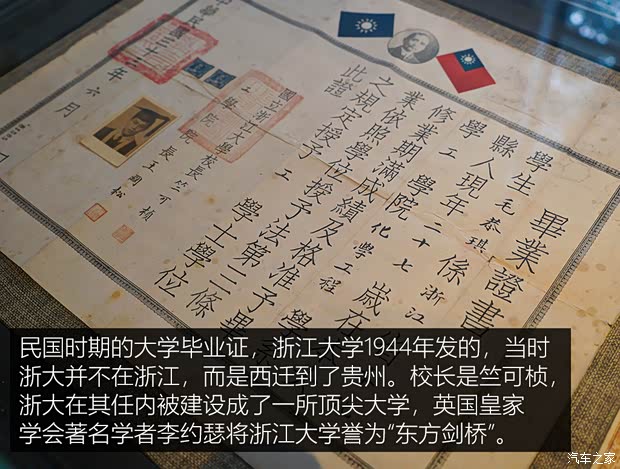 畢業證書
學生毛恭琪係浙江
縣人現年二十七歲在
學工學院化學工程
修業期滿成績及格准予畢
業依照學位授予法第三條
之規定授予工學士學位
此證
國立浙江大學校長竺可楨
工學院院長王國松
中華民國三十三年六月
民国时期的大学毕业证，浙江大学1944年发的，当时
浙大并不在浙江，而是西迁到了贵州。校长是竺可桢，
浙大在其任内被建设成了一所顶尖大学，英国皇家
学会著名学者李约瑟将浙江大学誉为“东方剑桥”。
汽车之家